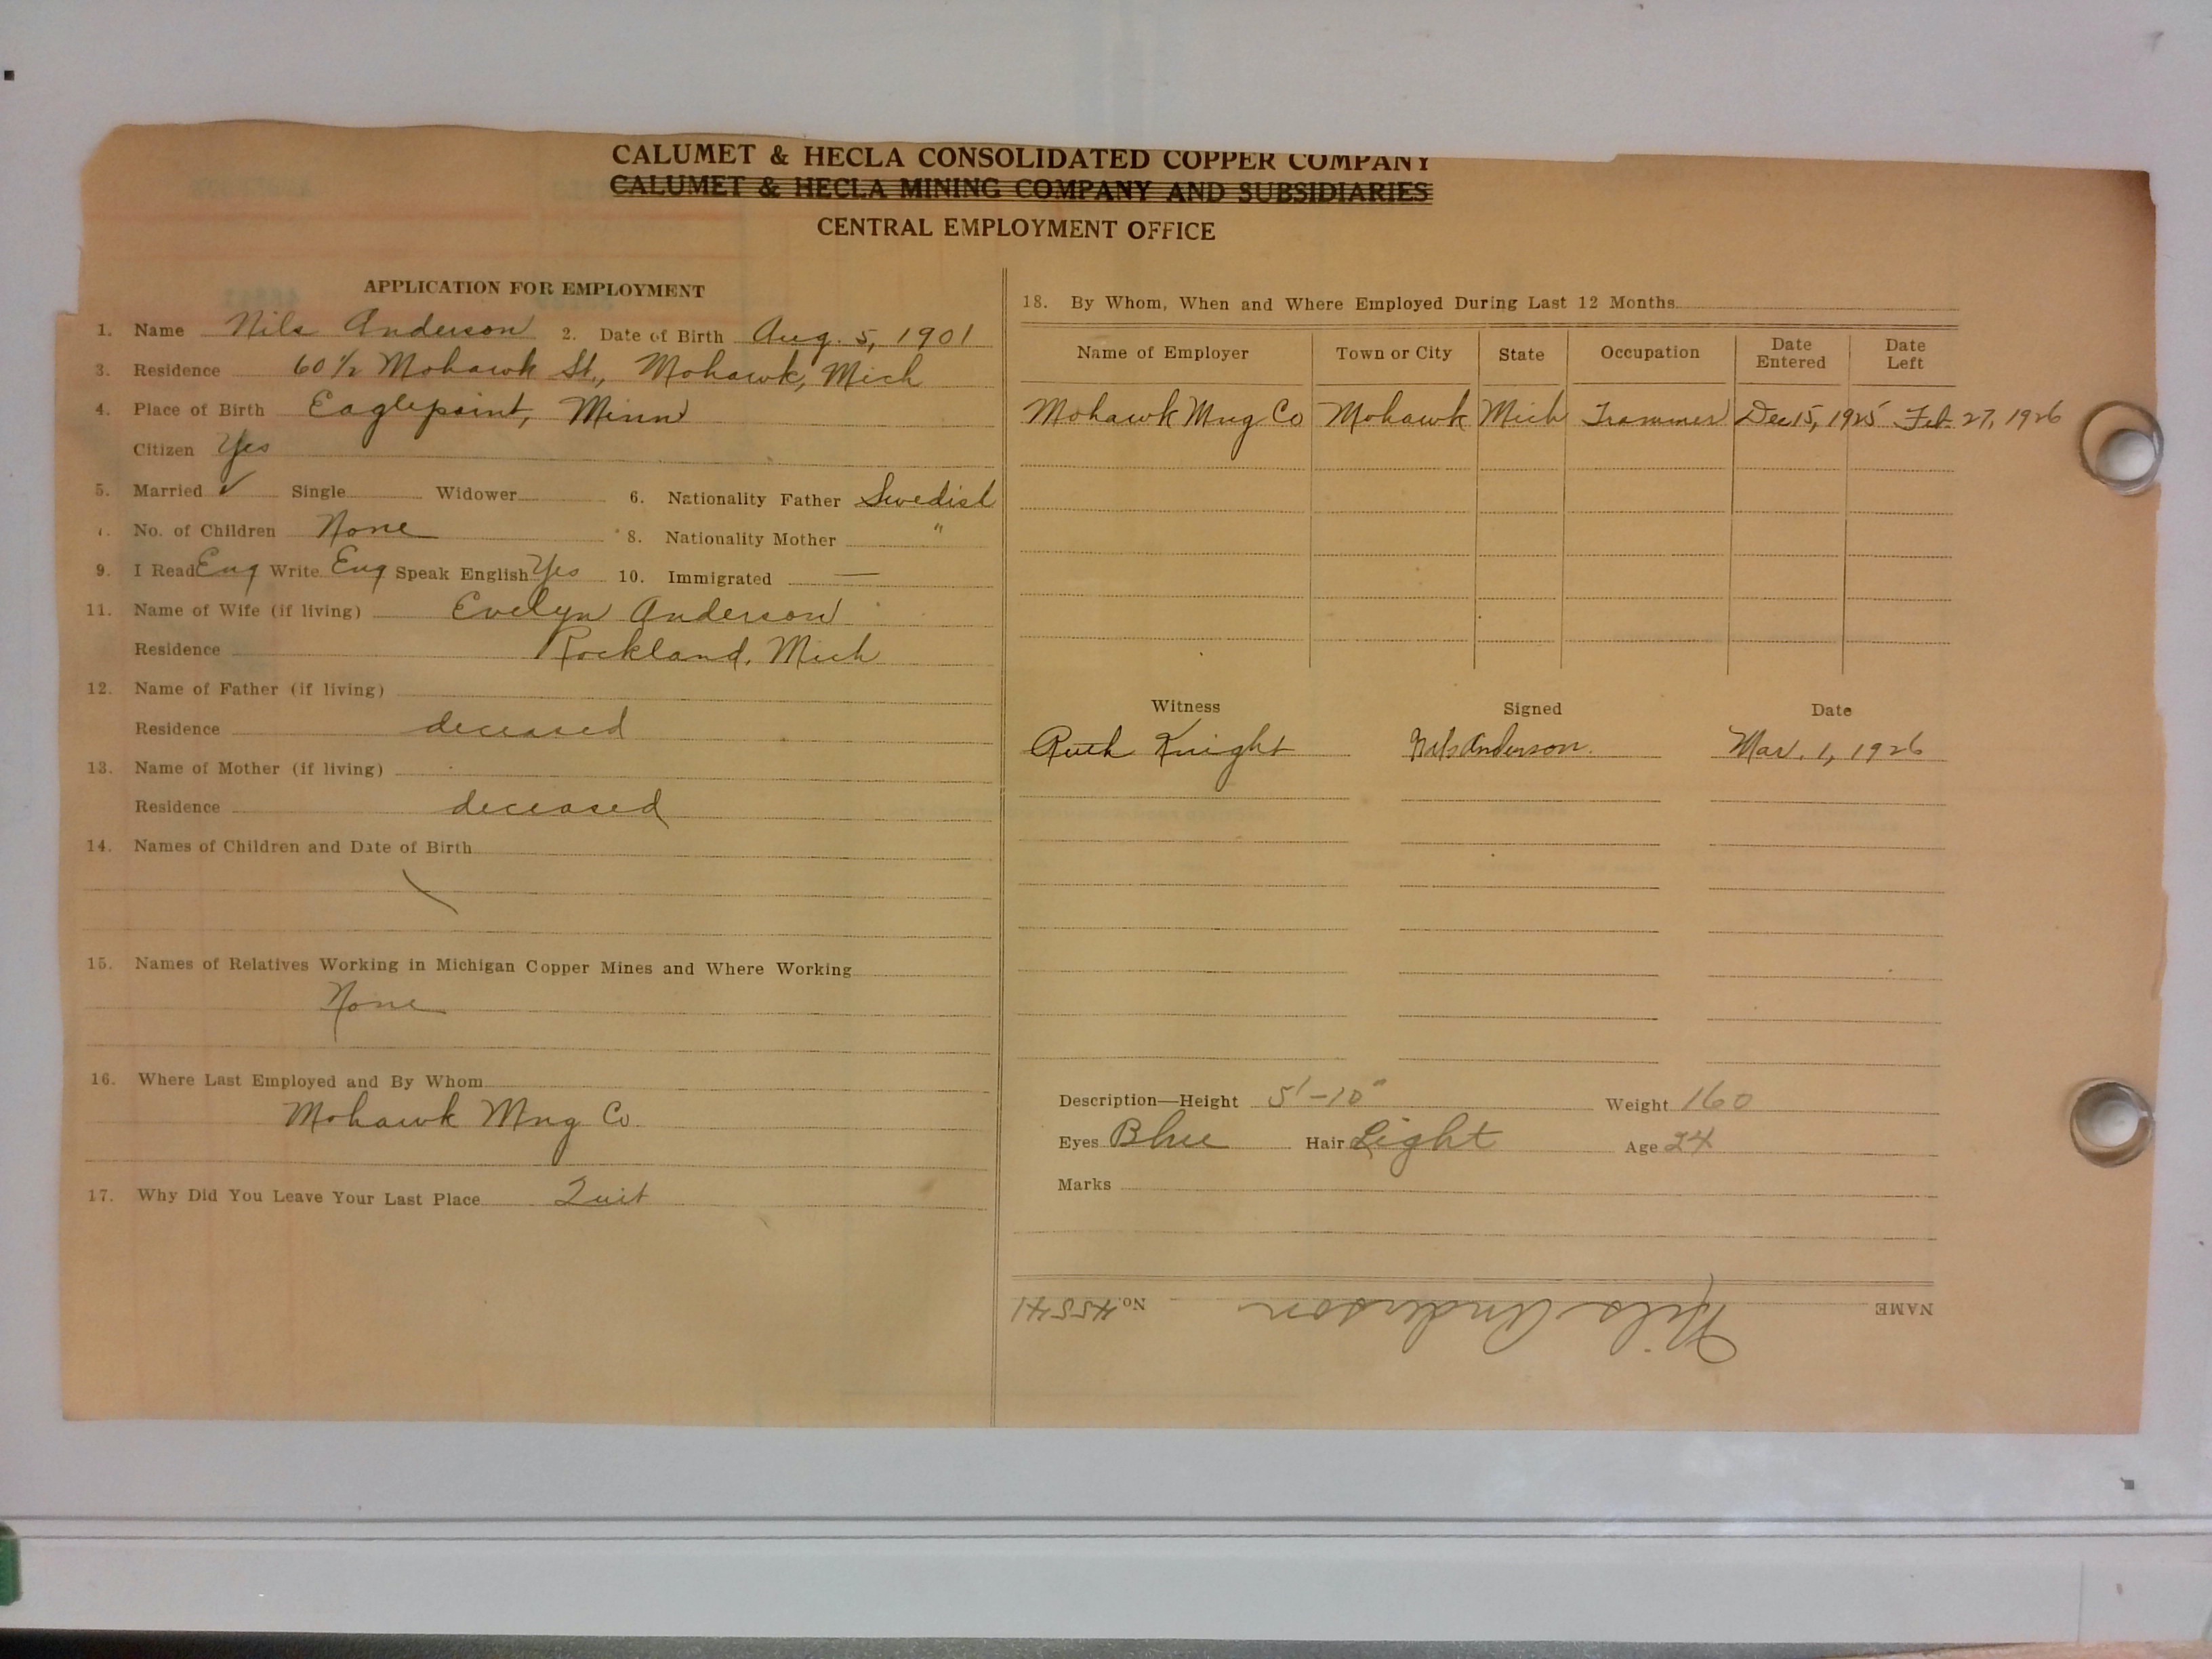 CALUMET & HECLA CONSOLIDATED COPPER COMPANY
CALUMET & HECLA MINING COMPANY AND SUBSIDIARIES
CENTRAL EMPLOYMENT OFFICE
APPLICATION FOR EMPLOYMENT
1. Name Nils Anderson 2. Date of Birth Aug. 5, 1901
3. Residence 60 1/2 Mohawk St., Mohawk, Mich
4. Place of Birth Eaglepoint, Minn
Citizen Yes
5. Married ✓ Single Widower 6. Nationality Father Swedish
No. of Children None 8. Nationality Mother "
9. I Read Eng Write Eng Speak English Yes 10. Immigrated —
11. Name of Wife (if living) Evelyn Anderson
Residence Rockland, Mich
12. Name of Father (if living)
Residence deceased
13. Name of Mother (if living)
Residence deceased
14. Names of Children and Date of Birth
15. Names of Relatives Working in Michigan Copper Mines and Where Working
None
16. Where Last Employed and By Whom
Mohawk Mng Co.
17. Why Did You Leave Your Last Place Quit
18. By Whom, When and Where Employed During Last 12 Months
Name of Employer Town or City State Occupation Date Entered Date Left
Mohawk Mng Co Mohawk Mich Trammer Dec 15, 1925 Feb. 27, 1926
Witness Signed Date
Ruth Knight Nils Anderson. Mar. 1, 1926
Description—Height 5'-10" Weight 160
Eyes Blue Hair Light Age 24
Marks
NAME Nils Anderson No. 45541